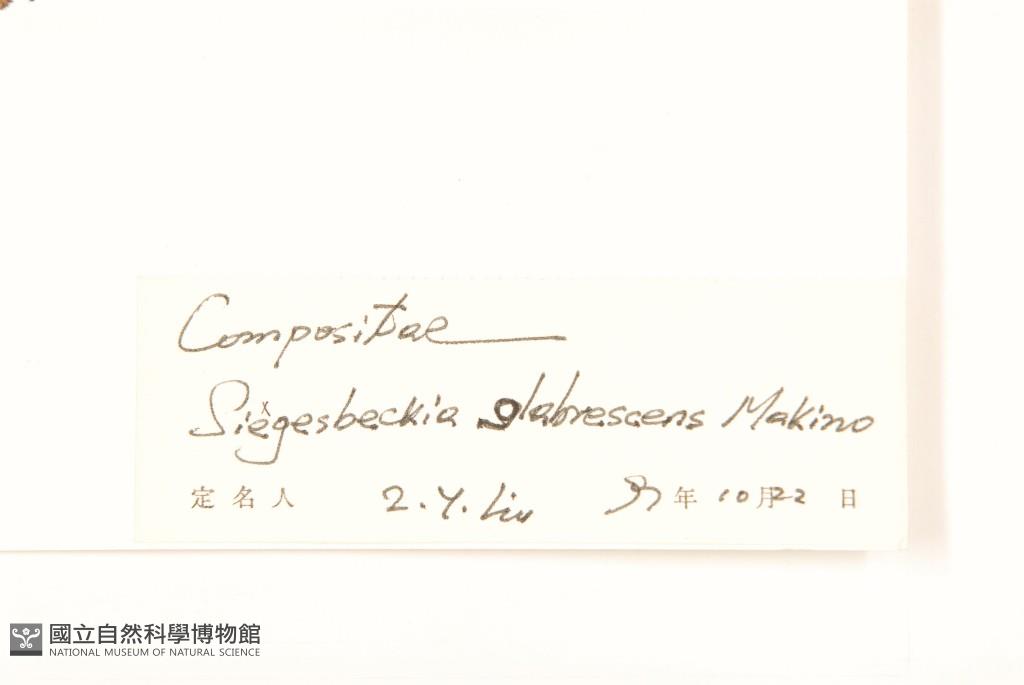 Compositae
Siegesbeckia glabrescens Makino
定名人 Z. Y. Liu 年 10月22日
國立自然科學博物館
NATIONAL MUSEUM OF NATURAL SCIENCE